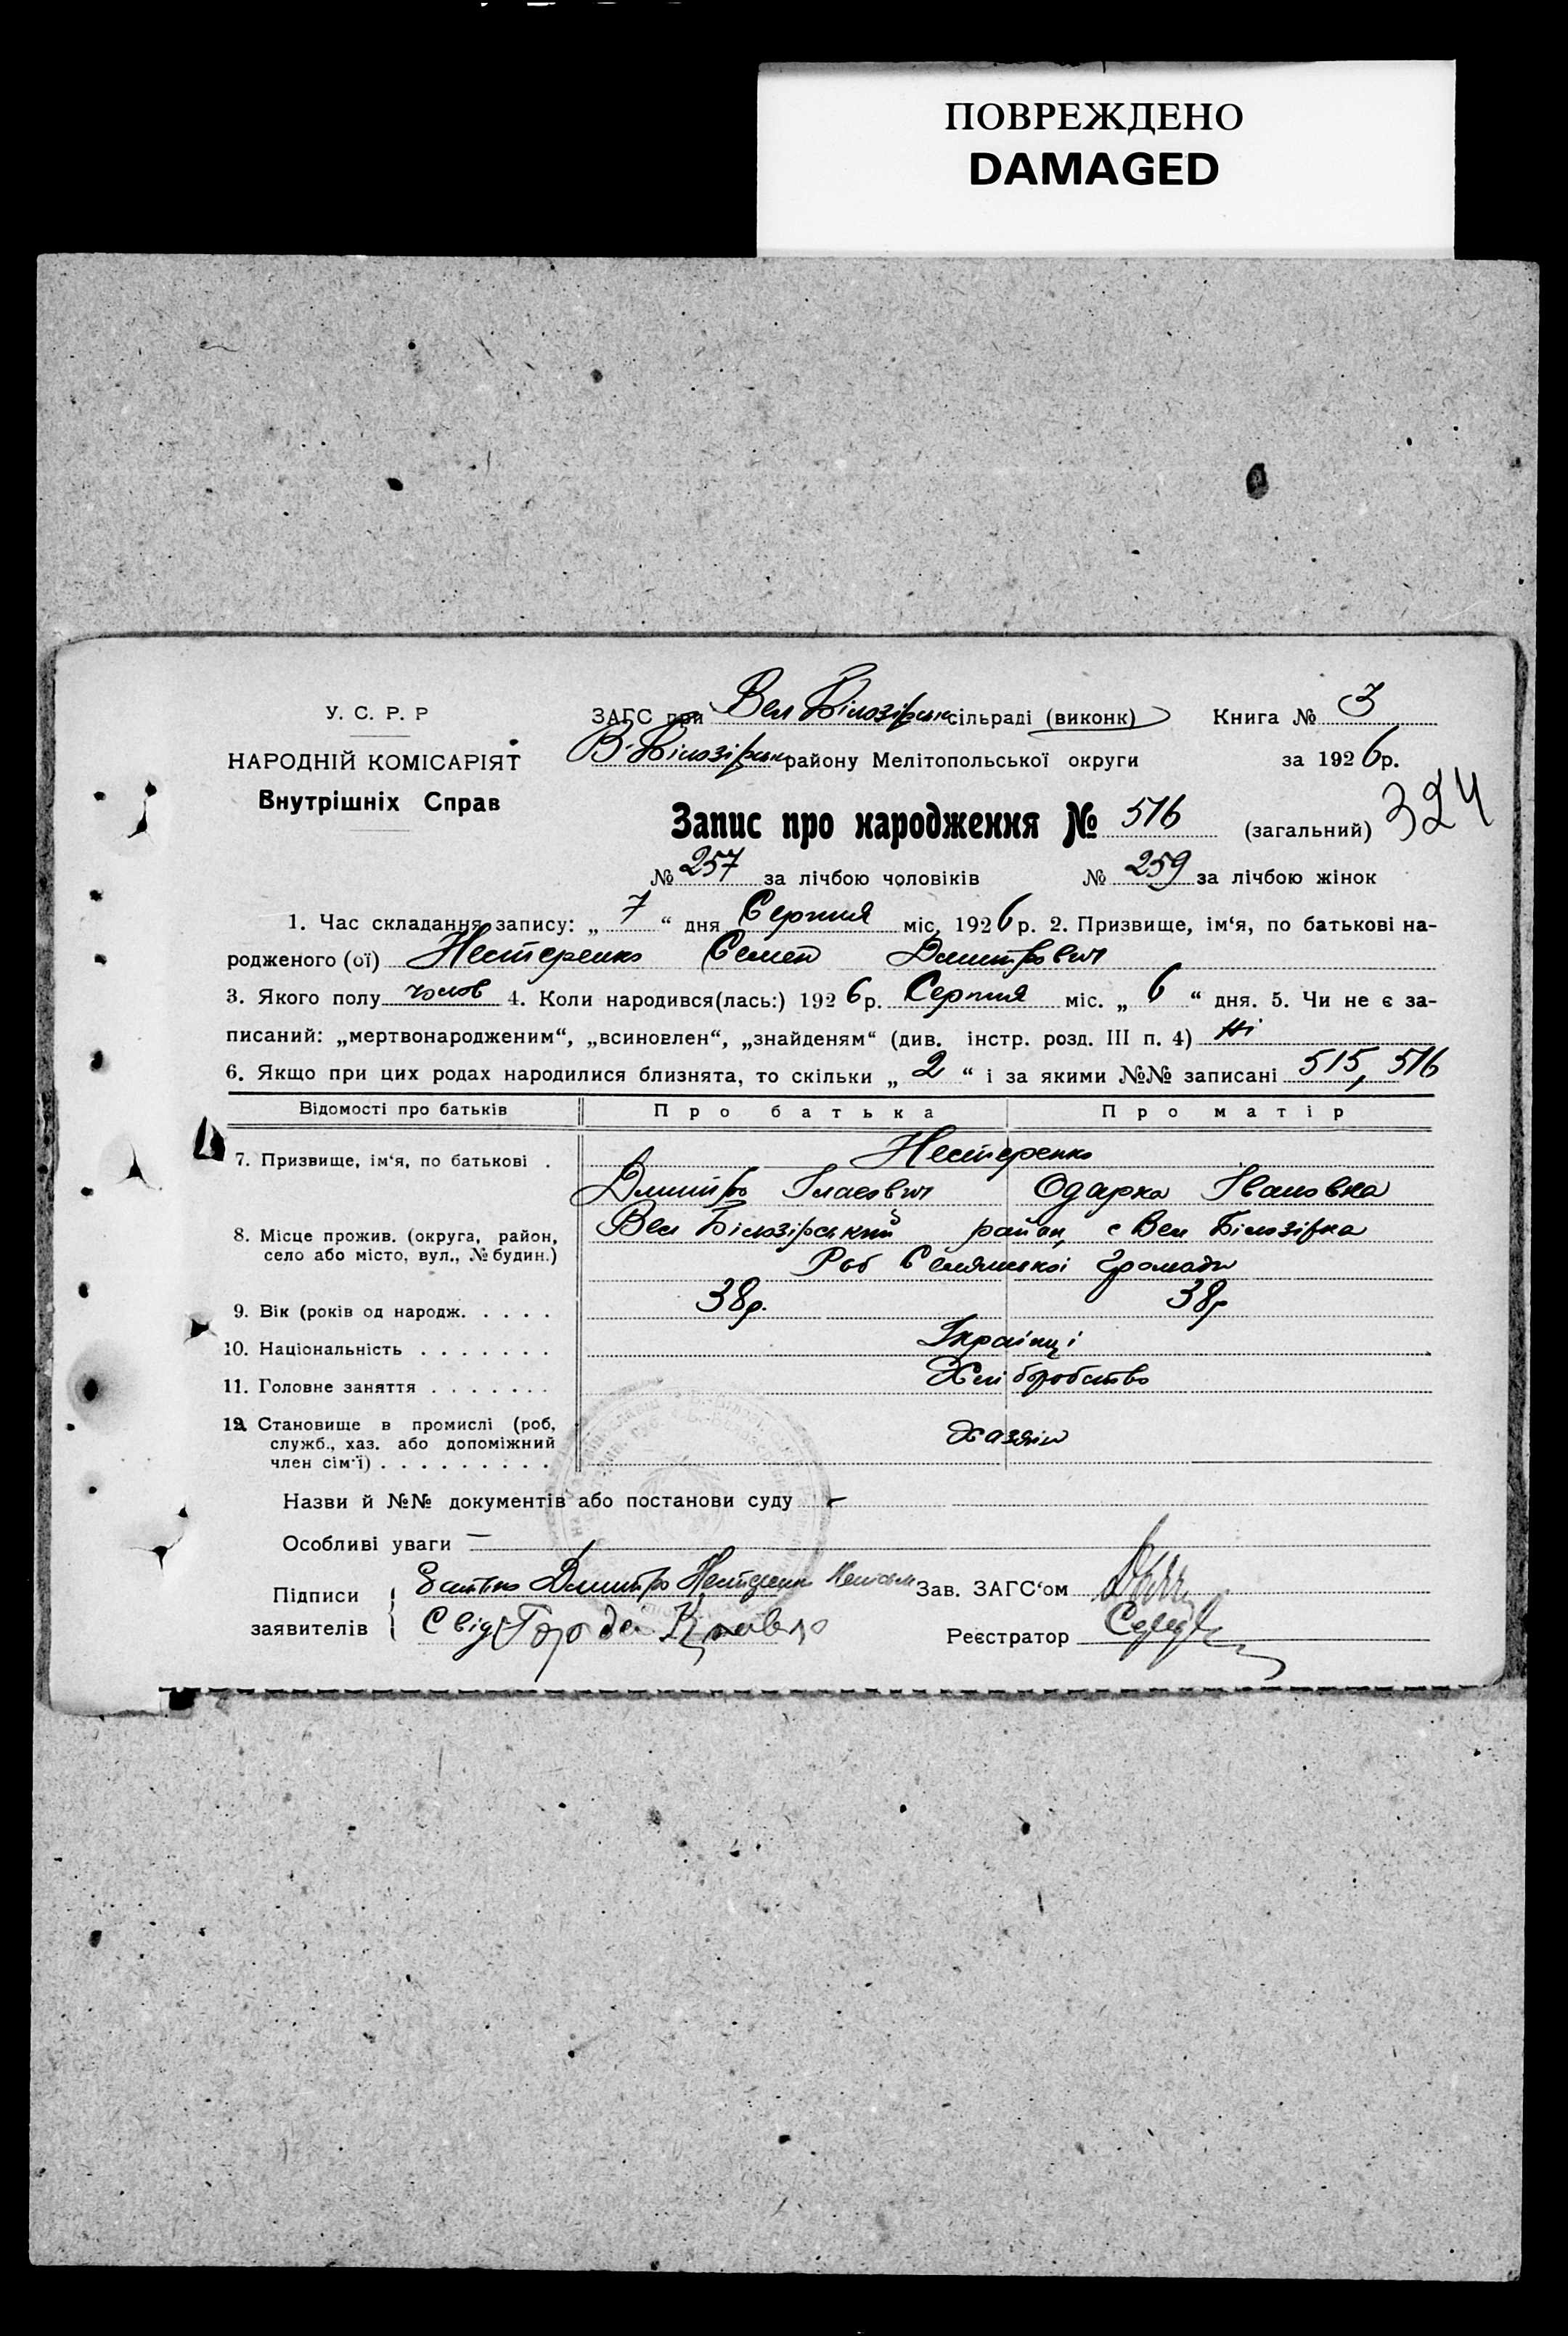 ПОВРЕЖДЕНО
DAMAGED
У. С. Р. Р
НАРОДНІЙ КОМІСАРІЯТ
Внутрішніх Справ
ЗАГС при Вел Білозірськ сільраді (виконк) Книга № 3
В-Білозірськ району Мелітопольської округи за 1926р.
Запис про народження № 516 (загальний) 324
№ 257 за лічбою чоловіків № 259 за лічбою жінок
1. Час складання запису: „ 7 “ дня Серпня міс. 1926р. 2. Призвище, ім‘я, по батькові на-
родженого (ої) Нестеренко Семен Дмитрович
3. Якого полу чолов 4. Коли народився(лась:) 1926р. Серпня міс. „ 6 “ дня. 5. Чи не є за-
писаний: „мертвонародженим“, „всиновлен“, „знайденям“ (див. інстр. розд. III п. 4) Ні
6. Якщо при цих родах народилися близнята, то скільки „ 2 “ і за якими №№ записані 515, 516
Відомості про батьків Про батька Про матір
7. Призвище, ім‘я, по батькові . Нестеренко
Дмитро Одарка Івановна
8. Місце прожив. (округа, район, село або місто, вул., № будин.) Вел Білозірський район, с Вел Білозірка
Громади
9. Вік (років од народж. . . . . 38р. 38р
10. Національність . . . . . . . Українці
11. Головне заняття . . . . . . . Хліборобство
12. Становище в промислі (роб, служб., хаз. або допоміжний член сім‘ї) . . . . . . . . . Хазяін
Назви й №№ документів або постанови суду –
Особливі уваги —
Підписи заявителів { Батько Дмитро Нестеренко Зав. ЗАГС‘ом
Свід Гордей Реєстратор